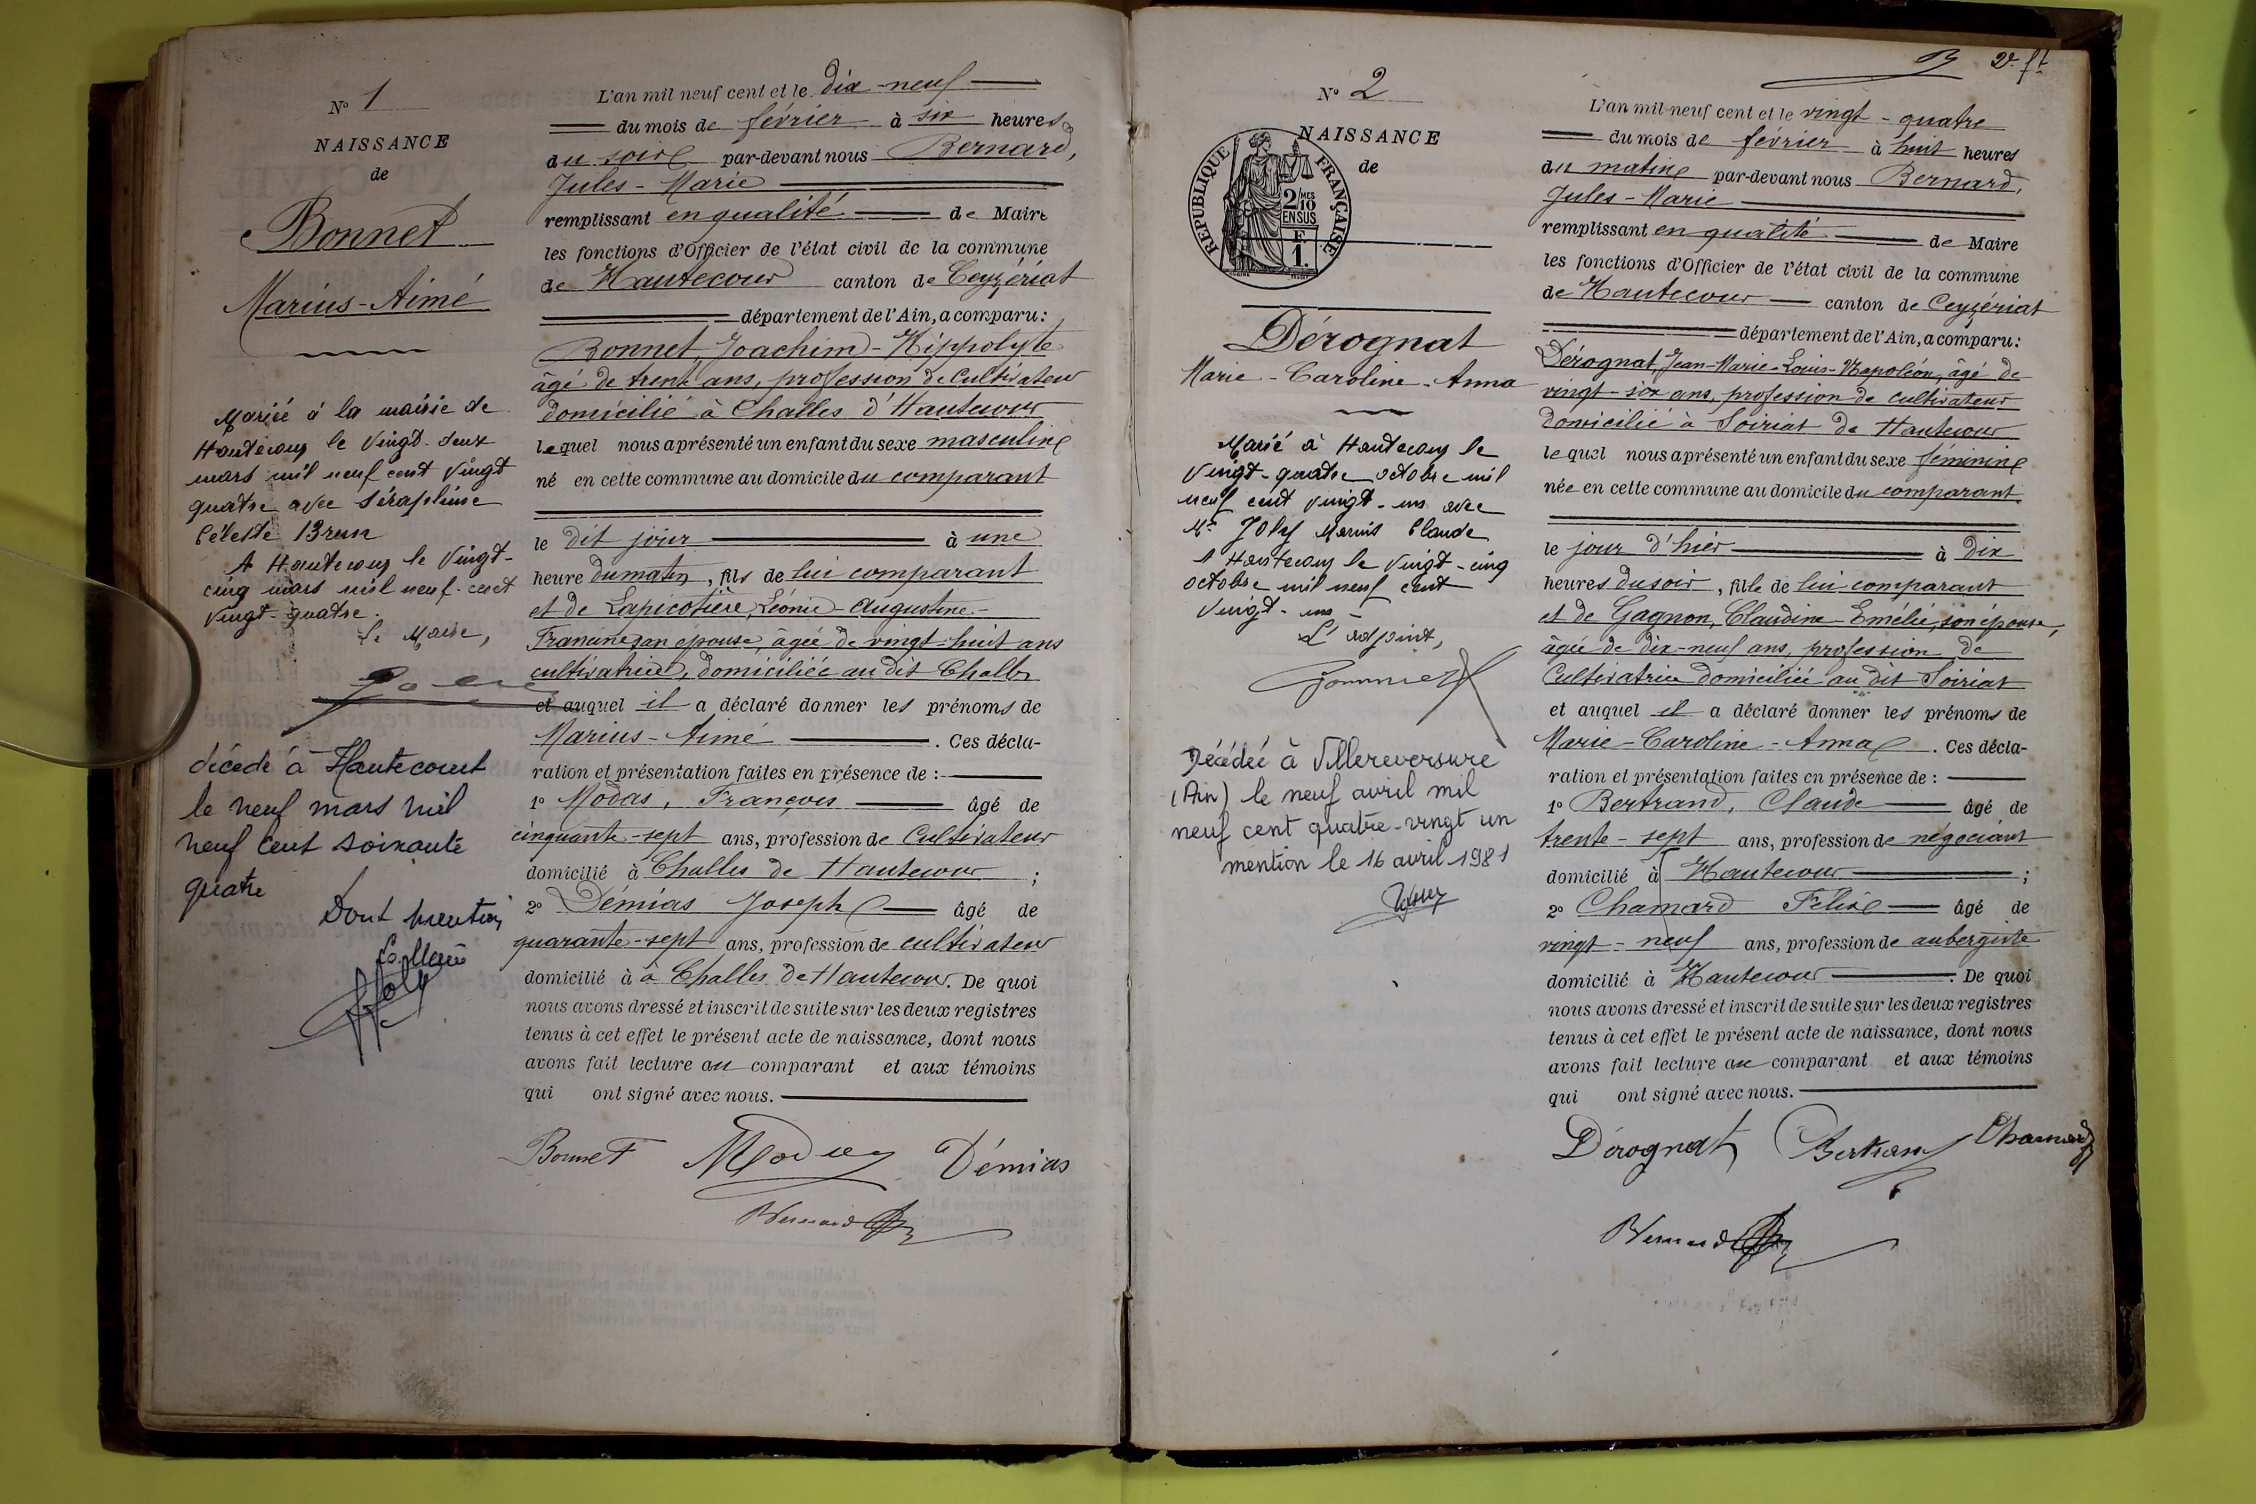 N° 1
NAISSANCE
de
Bonnet
Marius-Aimé
Mariée à la mairie de
Hautecour le vingt-deux
mars mil neuf cent vingt
quatre avec Séraphine
Céleste Brun
A Hautecour le vingt-
cinq mars mil neuf-cent
vingt-quatre.
Le Maire,
décédé à Hautecourt
le neuf mars mil
neuf cent soixante
quatre
Dont mention
Le Maire
Joly
L'an mil neuf cent et le dix-neuf
du mois de février à six heures
du soir par-devant nous Bernard,
Jules-Marie
remplissant en qualité de Maire
les fonctions d'Officier de l'état civil de la commune
de Hautecour canton de Ceyzériat
département de l'Ain, a comparu:
Bonnet, Joachim-Hippolyte
âgé de trente ans, profession de Cultivateur
domicilié à Challes d'Hautecour
lequel nous a présenté un enfant du sexe masculin
né en cette commune au domicile du comparant
le dit jour à une
heure du matin, fils de lui comparant
et de Lapicotière, Léonie-Augustine-
Francine son épouse, âgée de vingt-huit ans
cultivatrice, domiciliée au dit Challes
et auquel il a déclaré donner les prénoms de
Marius-Aimé. Ces décla-
ration et présentation faites en présence de :
1° Modas, François âgé de
cinquante-sept ans, profession de Cultivateur
domicilié à Challes de Hautecour ;
2° Démias Joseph âgé de
quarante-sept ans, profession de cultivateur
domicilié à à Challes de Hautecour. De quoi
nous avons dressé et inscrit de suite sur les deux registres
tenus à cet effet le présent acte de naissance, dont nous
avons fait lecture au comparant et aux témoins
qui ont signé avec nous.
Bonnet Modas Démias
Bernard
N° 2
NAISSANCE
de
REPUBLIQUE FRANÇAISE
2/MES
10
EN SUS
F.
1.
Dérognat
Marie-Caroline-Anna
Marié à Hautecour le
vingt-quatre octobre mil
neuf cent vingt-un avec
Mr Joly Marius Claude
A Hautecour le vingt-cinq
octobre mil neuf cent
vingt-un
L'adjoint,
Décédée à Villereversure
(Ain) le neuf avril mil
neuf cent quatre-vingt un
mention le 16 avril 1981
2e ft
L'an mil neuf cent et le vingt-quatre
du mois de février à huit heures
du matin par-devant nous Bernard,
Jules-Marie
remplissant en qualité de Maire
les fonctions d'Officier de l'état civil de la commune
de Hautecour canton de Ceyzériat
département de l'Ain, a comparu:
Dérognat, Jean-Marie-Louis-Napoléon, âgé de
vingt-six ans, profession de cultivateur
domicilié à Soiriat de Hautecour
lequel nous a présenté un enfant du sexe féminin
née en cette commune au domicile du comparant
le jour d'hier à dix
heures du soir, fille de lui comparant
et de Gagnon, Claudine-Emélie, son épouse,
âgée de dix-neuf ans, profession de
Cultivatrice domiciliée au dit Soiriat
et auquel il a déclaré donner les prénoms de
Marie-Caroline-Anna. Ces décla-
ration et présentation faites en présence de :
1° Bertrand, Claude âgé de
trente-sept ans, profession de négociant
domicilié à Hautecour ;
2° Chamard Félix âgé de
vingt-neuf ans, profession de aubergiste
domicilié à Hautecour. De quoi
nous avons dressé et inscrit de suite sur les deux registres
tenus à cet effet le présent acte de naissance, dont nous
avons fait lecture au comparant et aux témoins
qui ont signé avec nous.
Dérognat Bertrand Chamard
Bernard